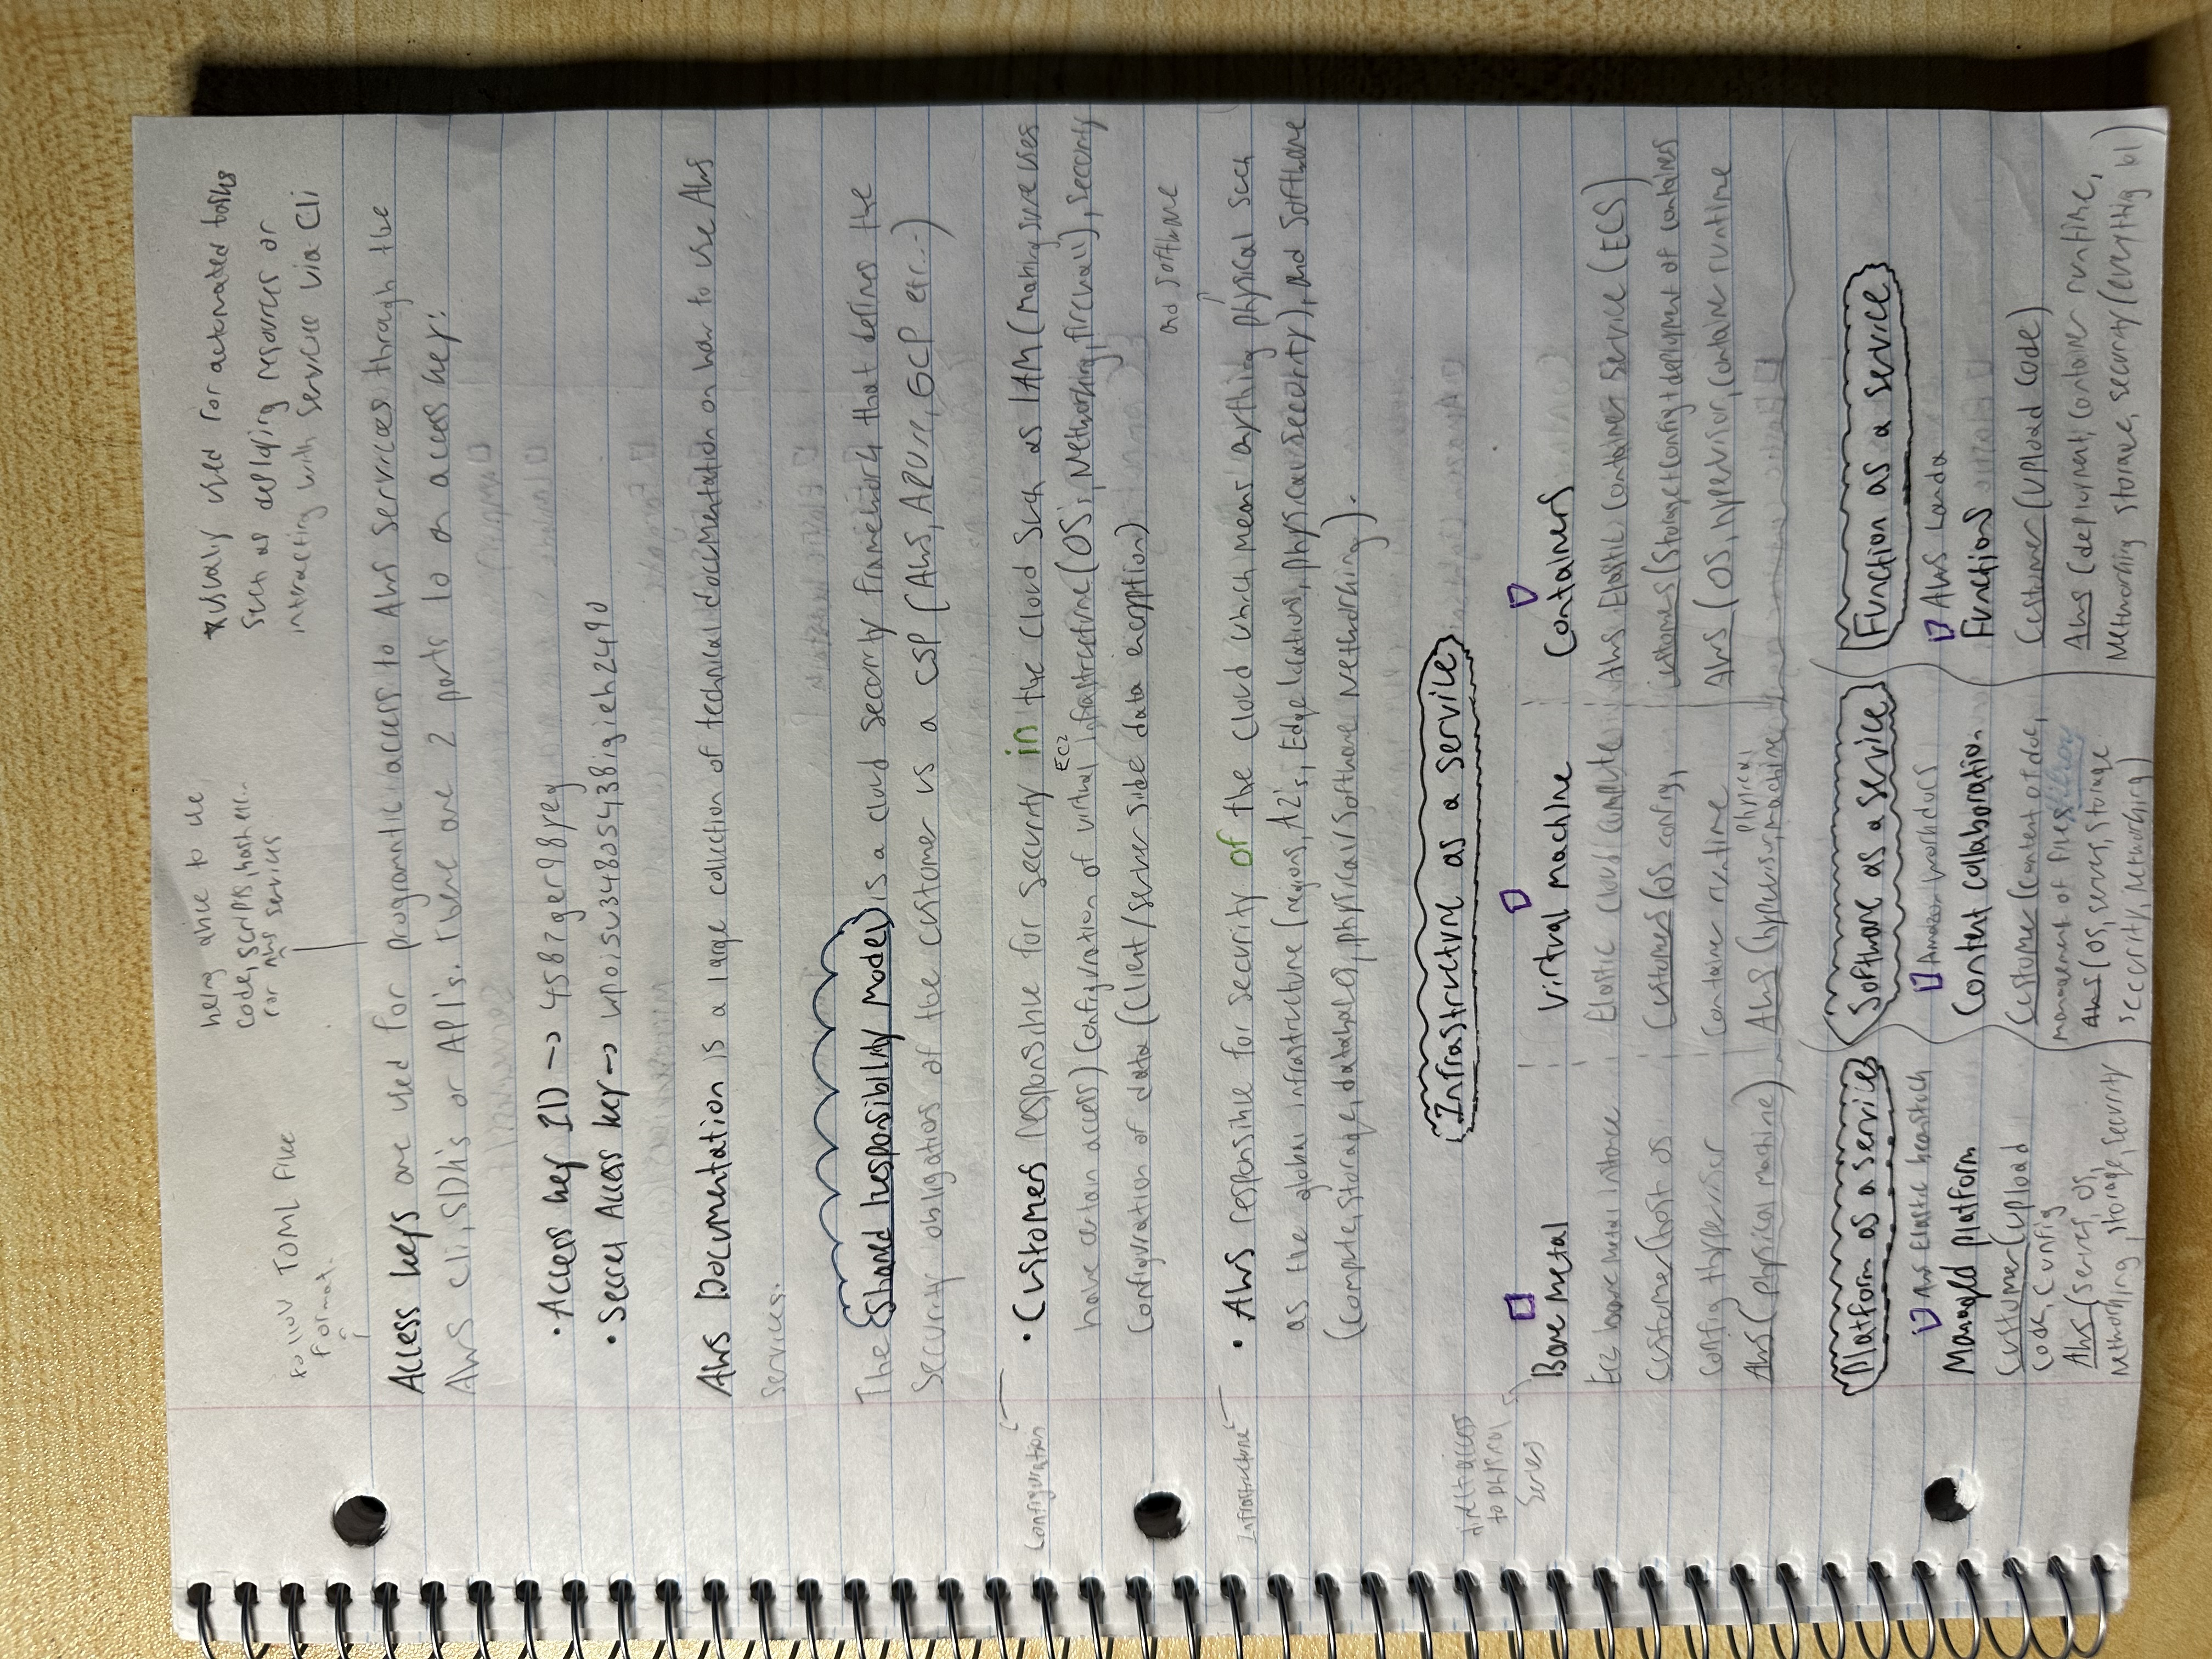 being able to use
code, scripts, bash etc...
for AWS services
*usually used for automated tasks
such as deploying resources or
interacting with services via Cli
follow TOML file
format.
Access keys are used for programntic access to AWS services through the
AWS Cli, SDK's or API's. There are 2 parts to an access key:
• Access key ID → 4587ger98yeg
• Secret Access key → wpoisu34805438igieh2490
AWS Documentation is a large collection of technical documentation on how to use AWS
services.
The Shared Responsibility Model is a cloud security framework that defines the
security obligations of the customer vs a CSP (AWS, AZure, GCP etc...)
Configuration
• Customers responsible for security in the cloud such as IAM (making sure uses
have certain access) Configuration of virtual infrastructure (OS's, Networking, firewall), security
EC2
configuration of data (Client/server side data encryption)
and software
Infrastructure
• AWS responsible for security of the cloud which means anything physical such
as the global infrastructure (regions, AZ's, Edge locations, physical security), and software
(compute, storage, databases, physical/software Networking).
Infrastructure as a service
direct access
to physical
Servers
Bare metal
EC2 bare metal instance
Customer (host os
config + hypervisor
AWS (physical machine)
Virtual machine
Elastic Cloud Compute
Customers (OS config,
Container runtime
AWS (hypervisor, physical
machine
Containers
AWS Elastic Container Service (ECS)
customers (storage + config + deployment of containers
AWS (OS, hypervisor, container runtime
Platform as a service
AWS Elastic beanstock
Managed platform
Customer (upload
code, config
AWS (servers, OS,
Networking, storage, security
Software as a service
Amazon workdocs
Content collaboration
Customer (content of doc,
management of files
Hilroy
AWS (OS, servers, storage
security, networking)
Function as a service
AWS Landa
Functions
Customer (upload code)
AWS (deployment, container runtime,
Networking storage, security (everythig lol)